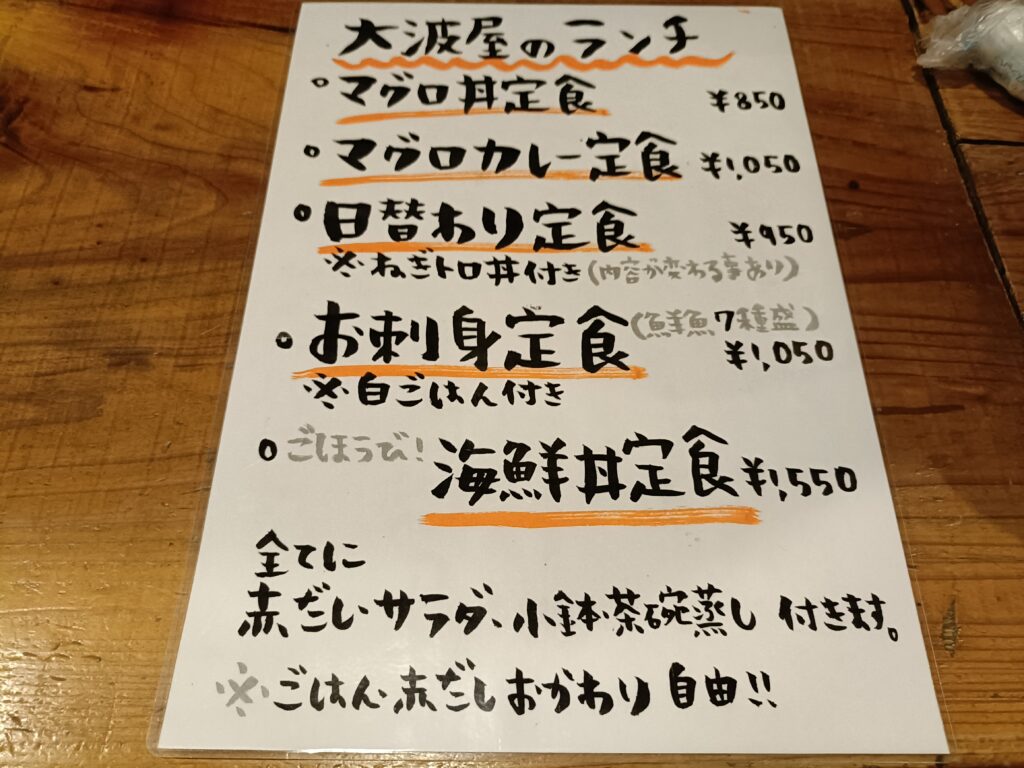 大波屋のランチ
○マグロ丼定食 ¥850
○マグロカレー定食 ¥1,050
○日替わり定食 ¥950
※ねぎトロ丼付き(内容が変わる事あり)
○お刺身定食(鮮魚7種盛)
¥1,050
※白ごはん付き
○ごほうび!海鮮丼定食 ¥1,550
全てに
赤だし・サラダ、小鉢・茶碗蒸し 付きます。
※ごはん・赤だしおかわり自由!!